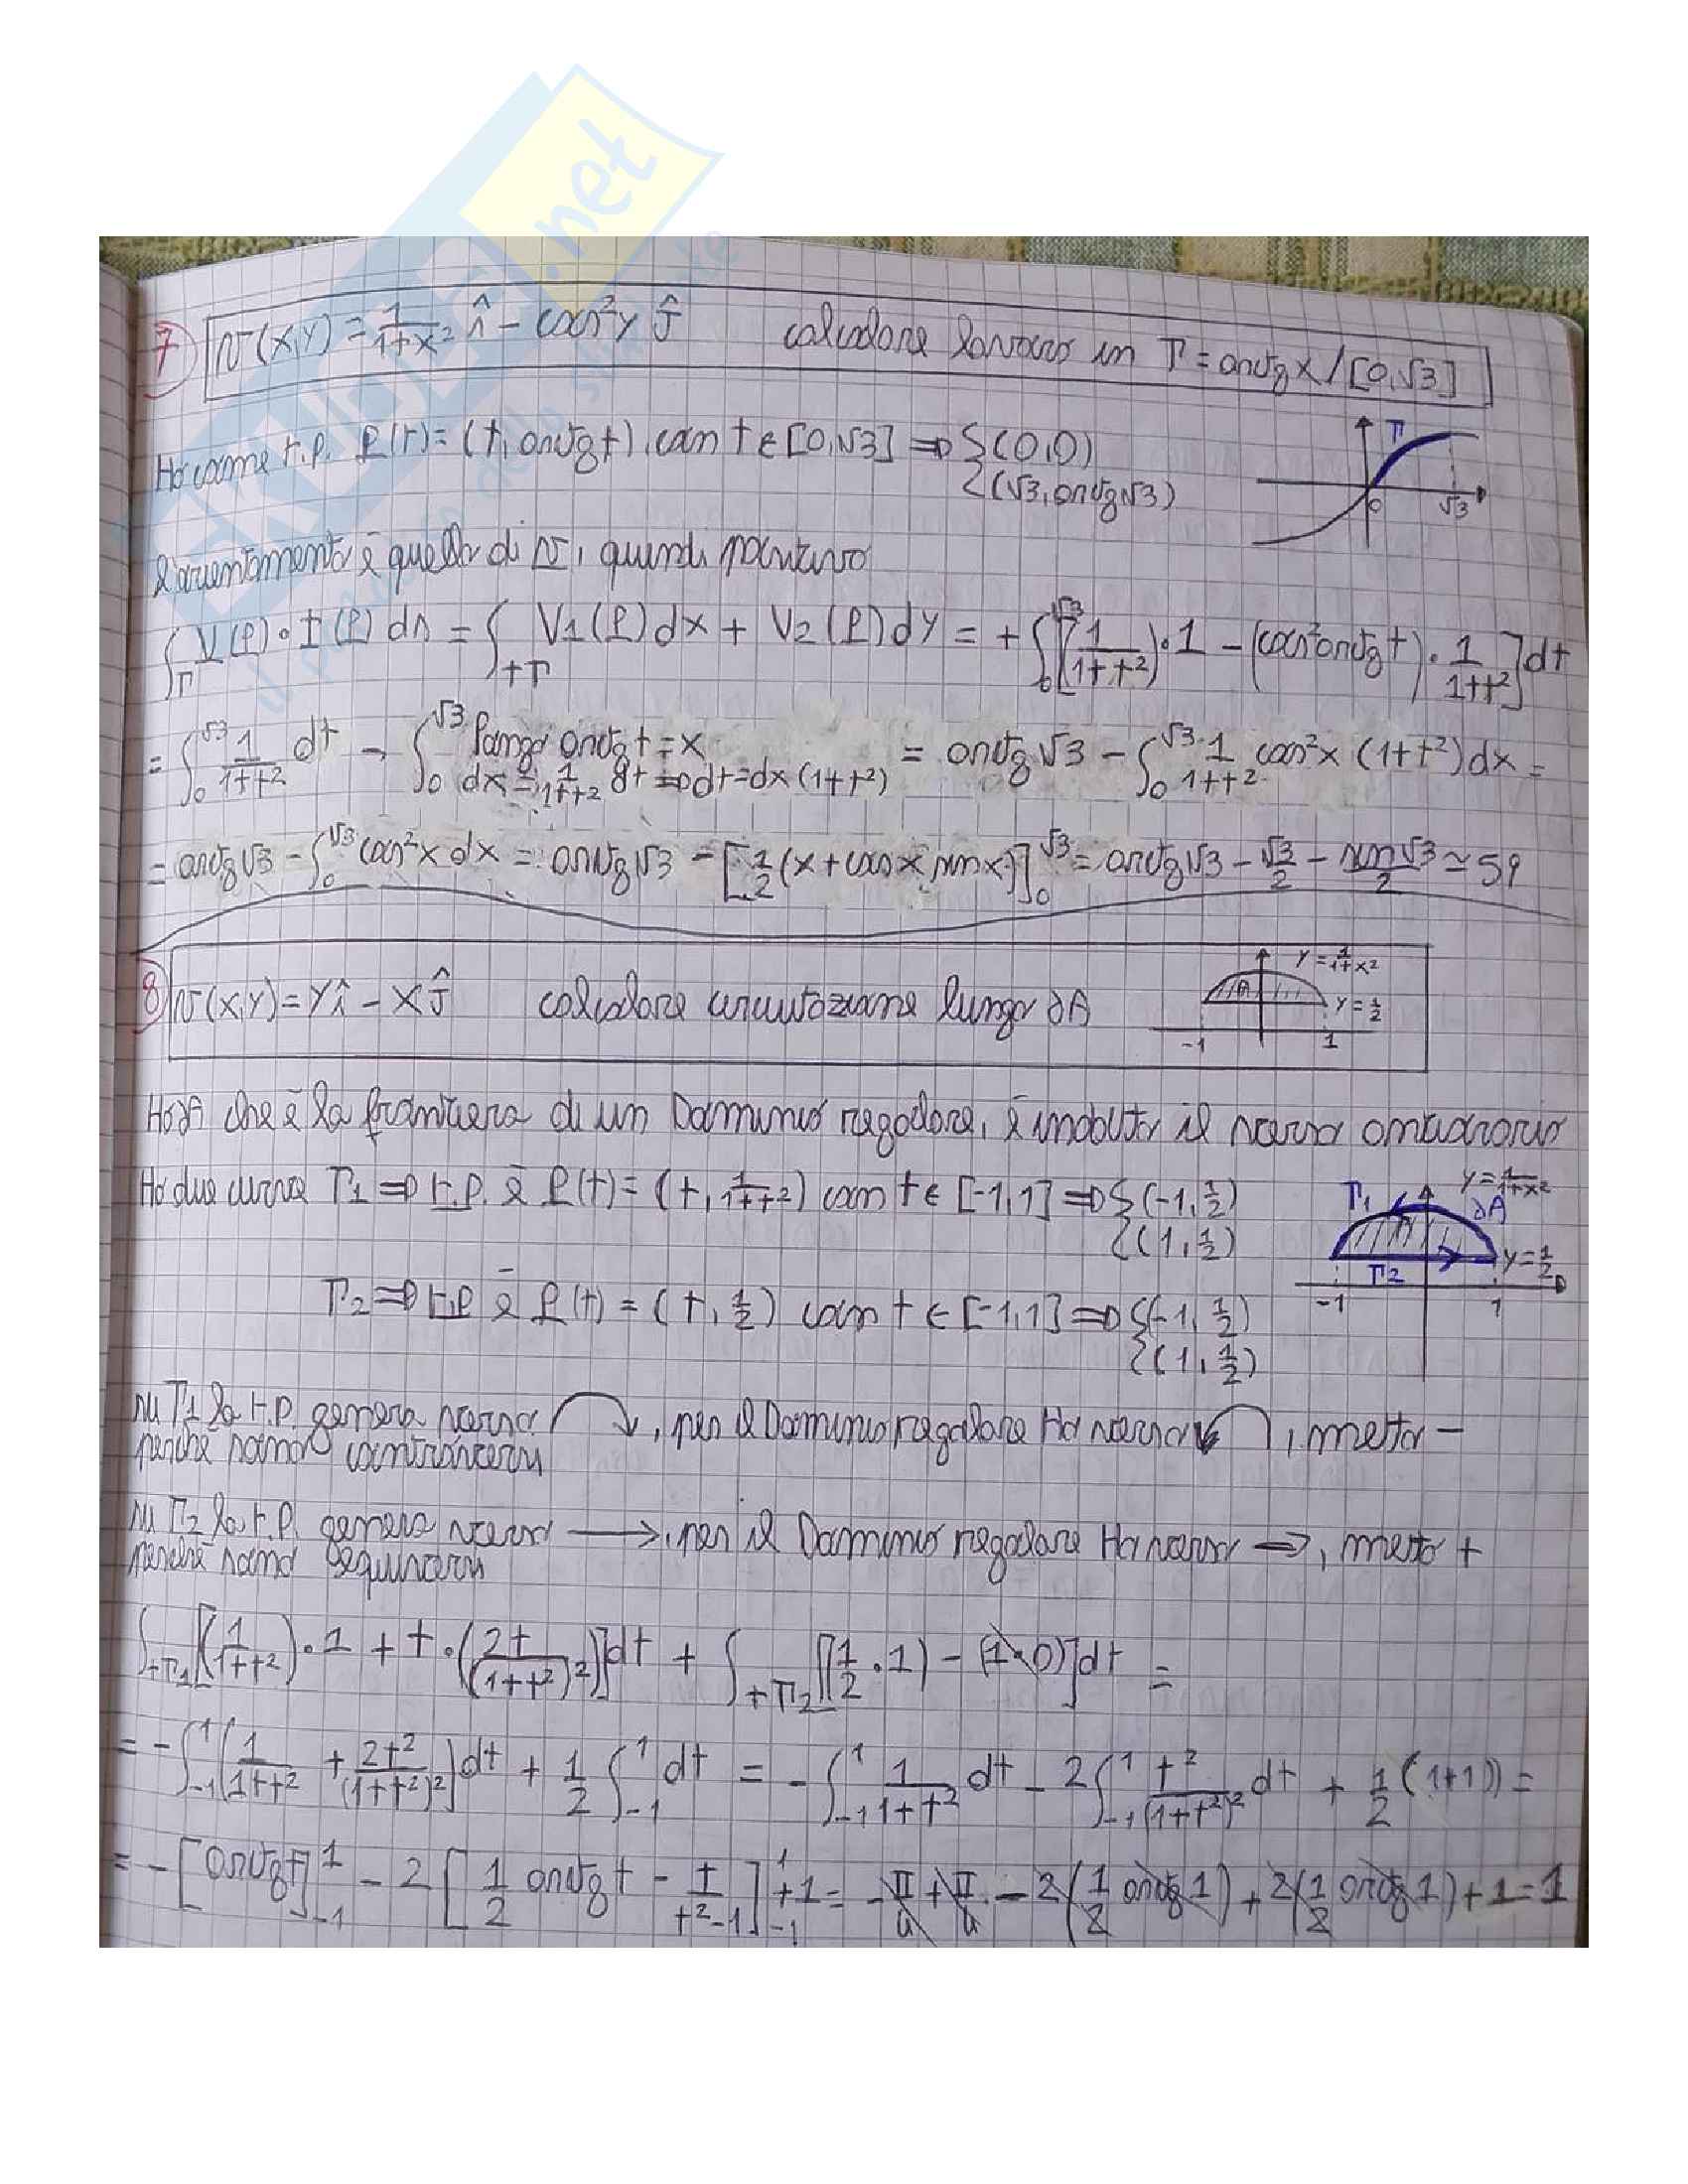 7 v(x,y) = 1/(1+x²) î - cos²y ĵ calcolare lavoro in Γ = arctg x / [0,√3]
Γ
0 √3
Ho come r.p. P(t) = (t, arctg t), con t ∈ [0,√3] => { (0,0)
{ (√3, arctg √3)
L'orientamento è quello di v, quindi positivo
∫_Γ V(P)•T(P) ds = ∫_{+Γ} V1(P)dx + V2(P)dy = + ∫_0^{√3} [(1/(1+t²))•1 - (cos² arctg t)•1/(1+t²)]dt
= ∫_0^{√3} 1/(1+t²) dt - ∫_0^{√3} Pongo arctg t = x = arctg √3 - ∫_0^{√3} 1/(1+t²) cos²x (1+t²)dx =
dx = 1/(1+t²) dt => dt = dx(1+t²)
= arctg √3 - ∫_0^{√3} cos²x dx = arctg √3 - [1/2 (x + cos x sin x)]_0^{√3} = arctg √3 - √3/2 - sin √3/2 ≃ 59
8 v(x,y) = yî - xĵ calcolare circuitazione lungo ∂A
y = 1/(1+x²)
A
y = 1/2
-1 1
Ho ∂A che è la frontiera di un Dominio regolare, è indotto il verso antiorario
Ho due curve Γ1 => r.p. è P(t) = (t, 1/(1+t²)) con t ∈ [-1,1] => { (-1, 1/2)
{ (1, 1/2)
Γ1 y = 1/(1+x²)
∂A
y = 1/2
Γ2
-1 1
Γ2 => r.p. è P(t) = (t, 1/2) con t ∈ [-1,1] => { (-1, 1/2)
{ (1, 1/2)
su Γ1 la r.p. genera verso ↷, per il Dominio regolare Ho verso ↶, metto -
perché sono controversi
su Γ2 la r.p. genera verso →, per il Dominio regolare Ho verso →, metto +
perché sono equiversi
∫_{+Γ1} [(1/(1+t²))•1 + t•(2t/(1+t²)²)]dt + ∫_{+Γ2} [(1/2•1) - (1•0)]dt =
= -∫_{-1}^1 (1/(1+t²) + 2t²/(1+t²)²)dt + 1/2 ∫_{-1}^1 dt = -∫_{-1}^1 1/(1+t²) dt - 2∫_{-1}^1 t²/(1+t²)² dt + 1/2 (1+1) =
= -[arctg t]_{-1}^1 - 2[1/2 arctg t - t/(t²-1)]_{-1}^1 + 1 = -π/4 + π/4 - 2(1/2 arctg 1) + 2(1/2 arctg 1) + 1 = 1
SKUOLA.net